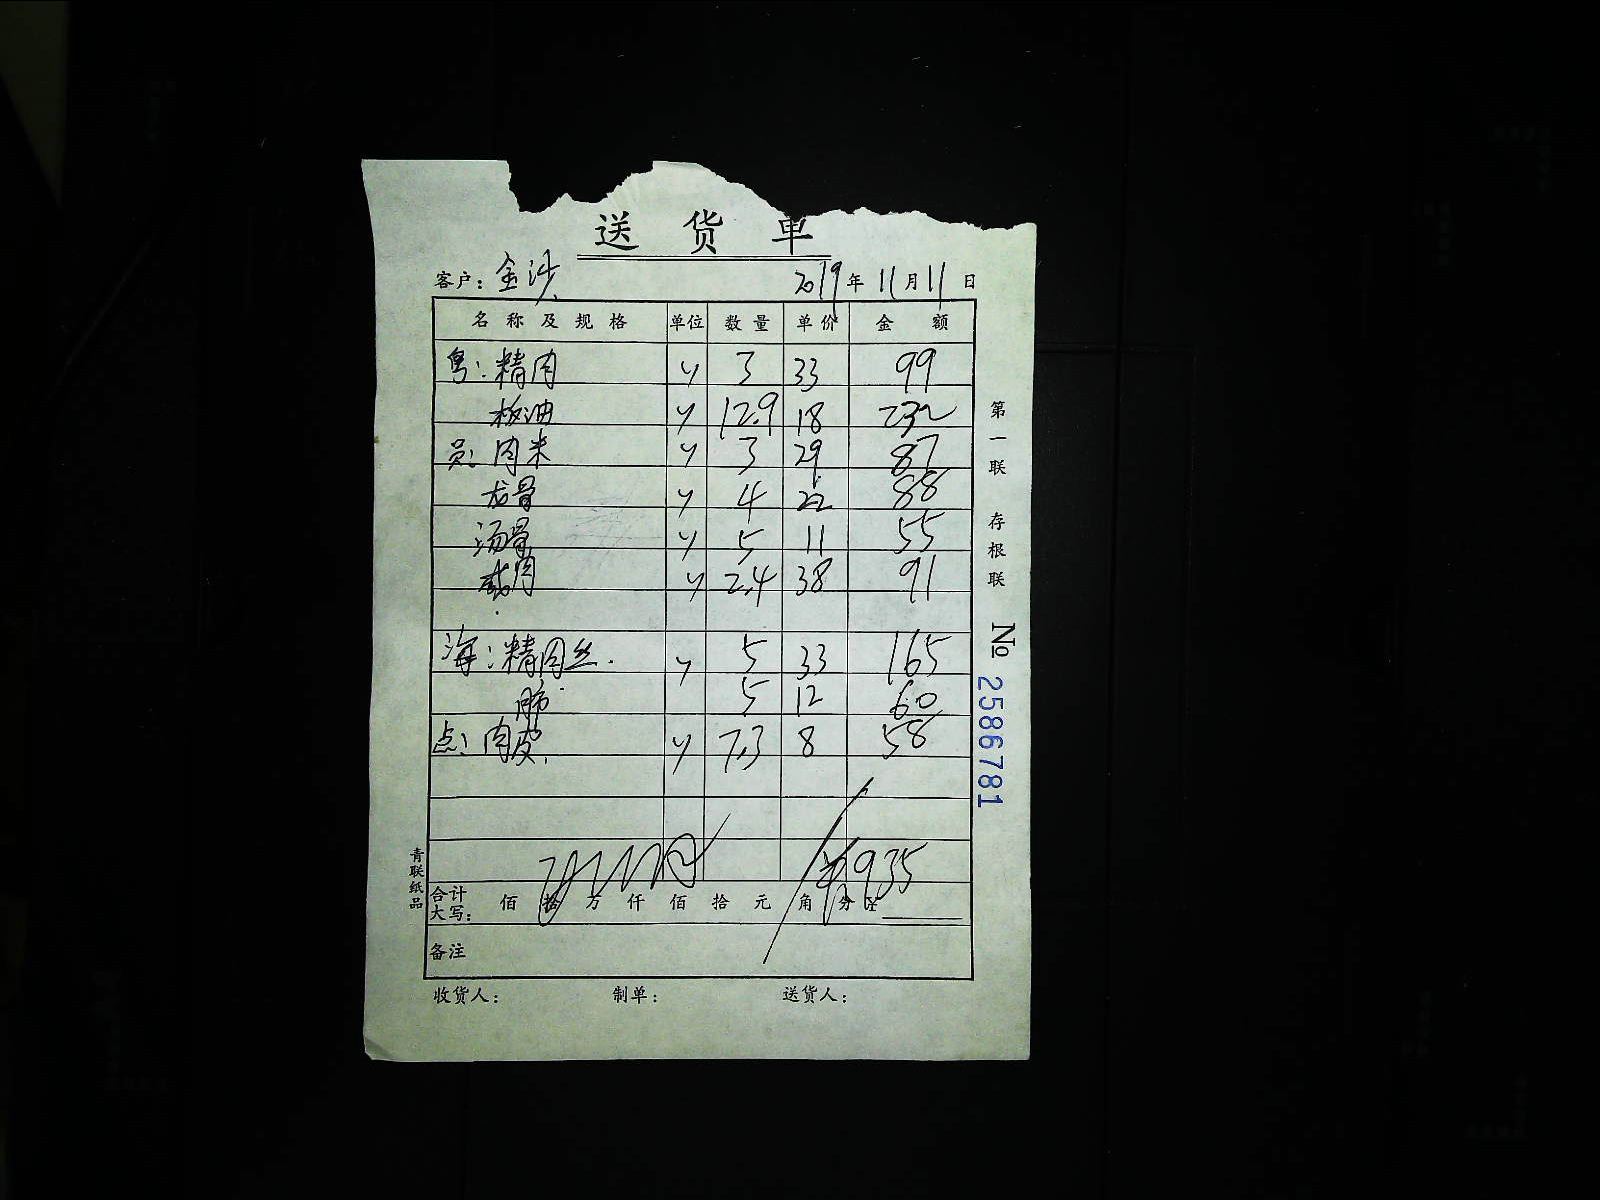 送货单
客户：金沙 2019年11月11日
名称及规格 单位 数量 单价 金额
粤：精肉 y 3 33 99
板油 y 12.9 18 232
员：肉米 y 3 29 87
龙骨 y 4 22 88
汤骨 y 5 11 55
咸肉 y 2.4 38 91
海：精肉丝 y 5 33 165
肺 5 12 60
点：肉皮 y 7.3 8 58
¥935
合计大写： 佰拾万仟佰拾元角分
备注
收货人： 制单： 送货人：
第一联 存根联
№ 2586781
青联纸品